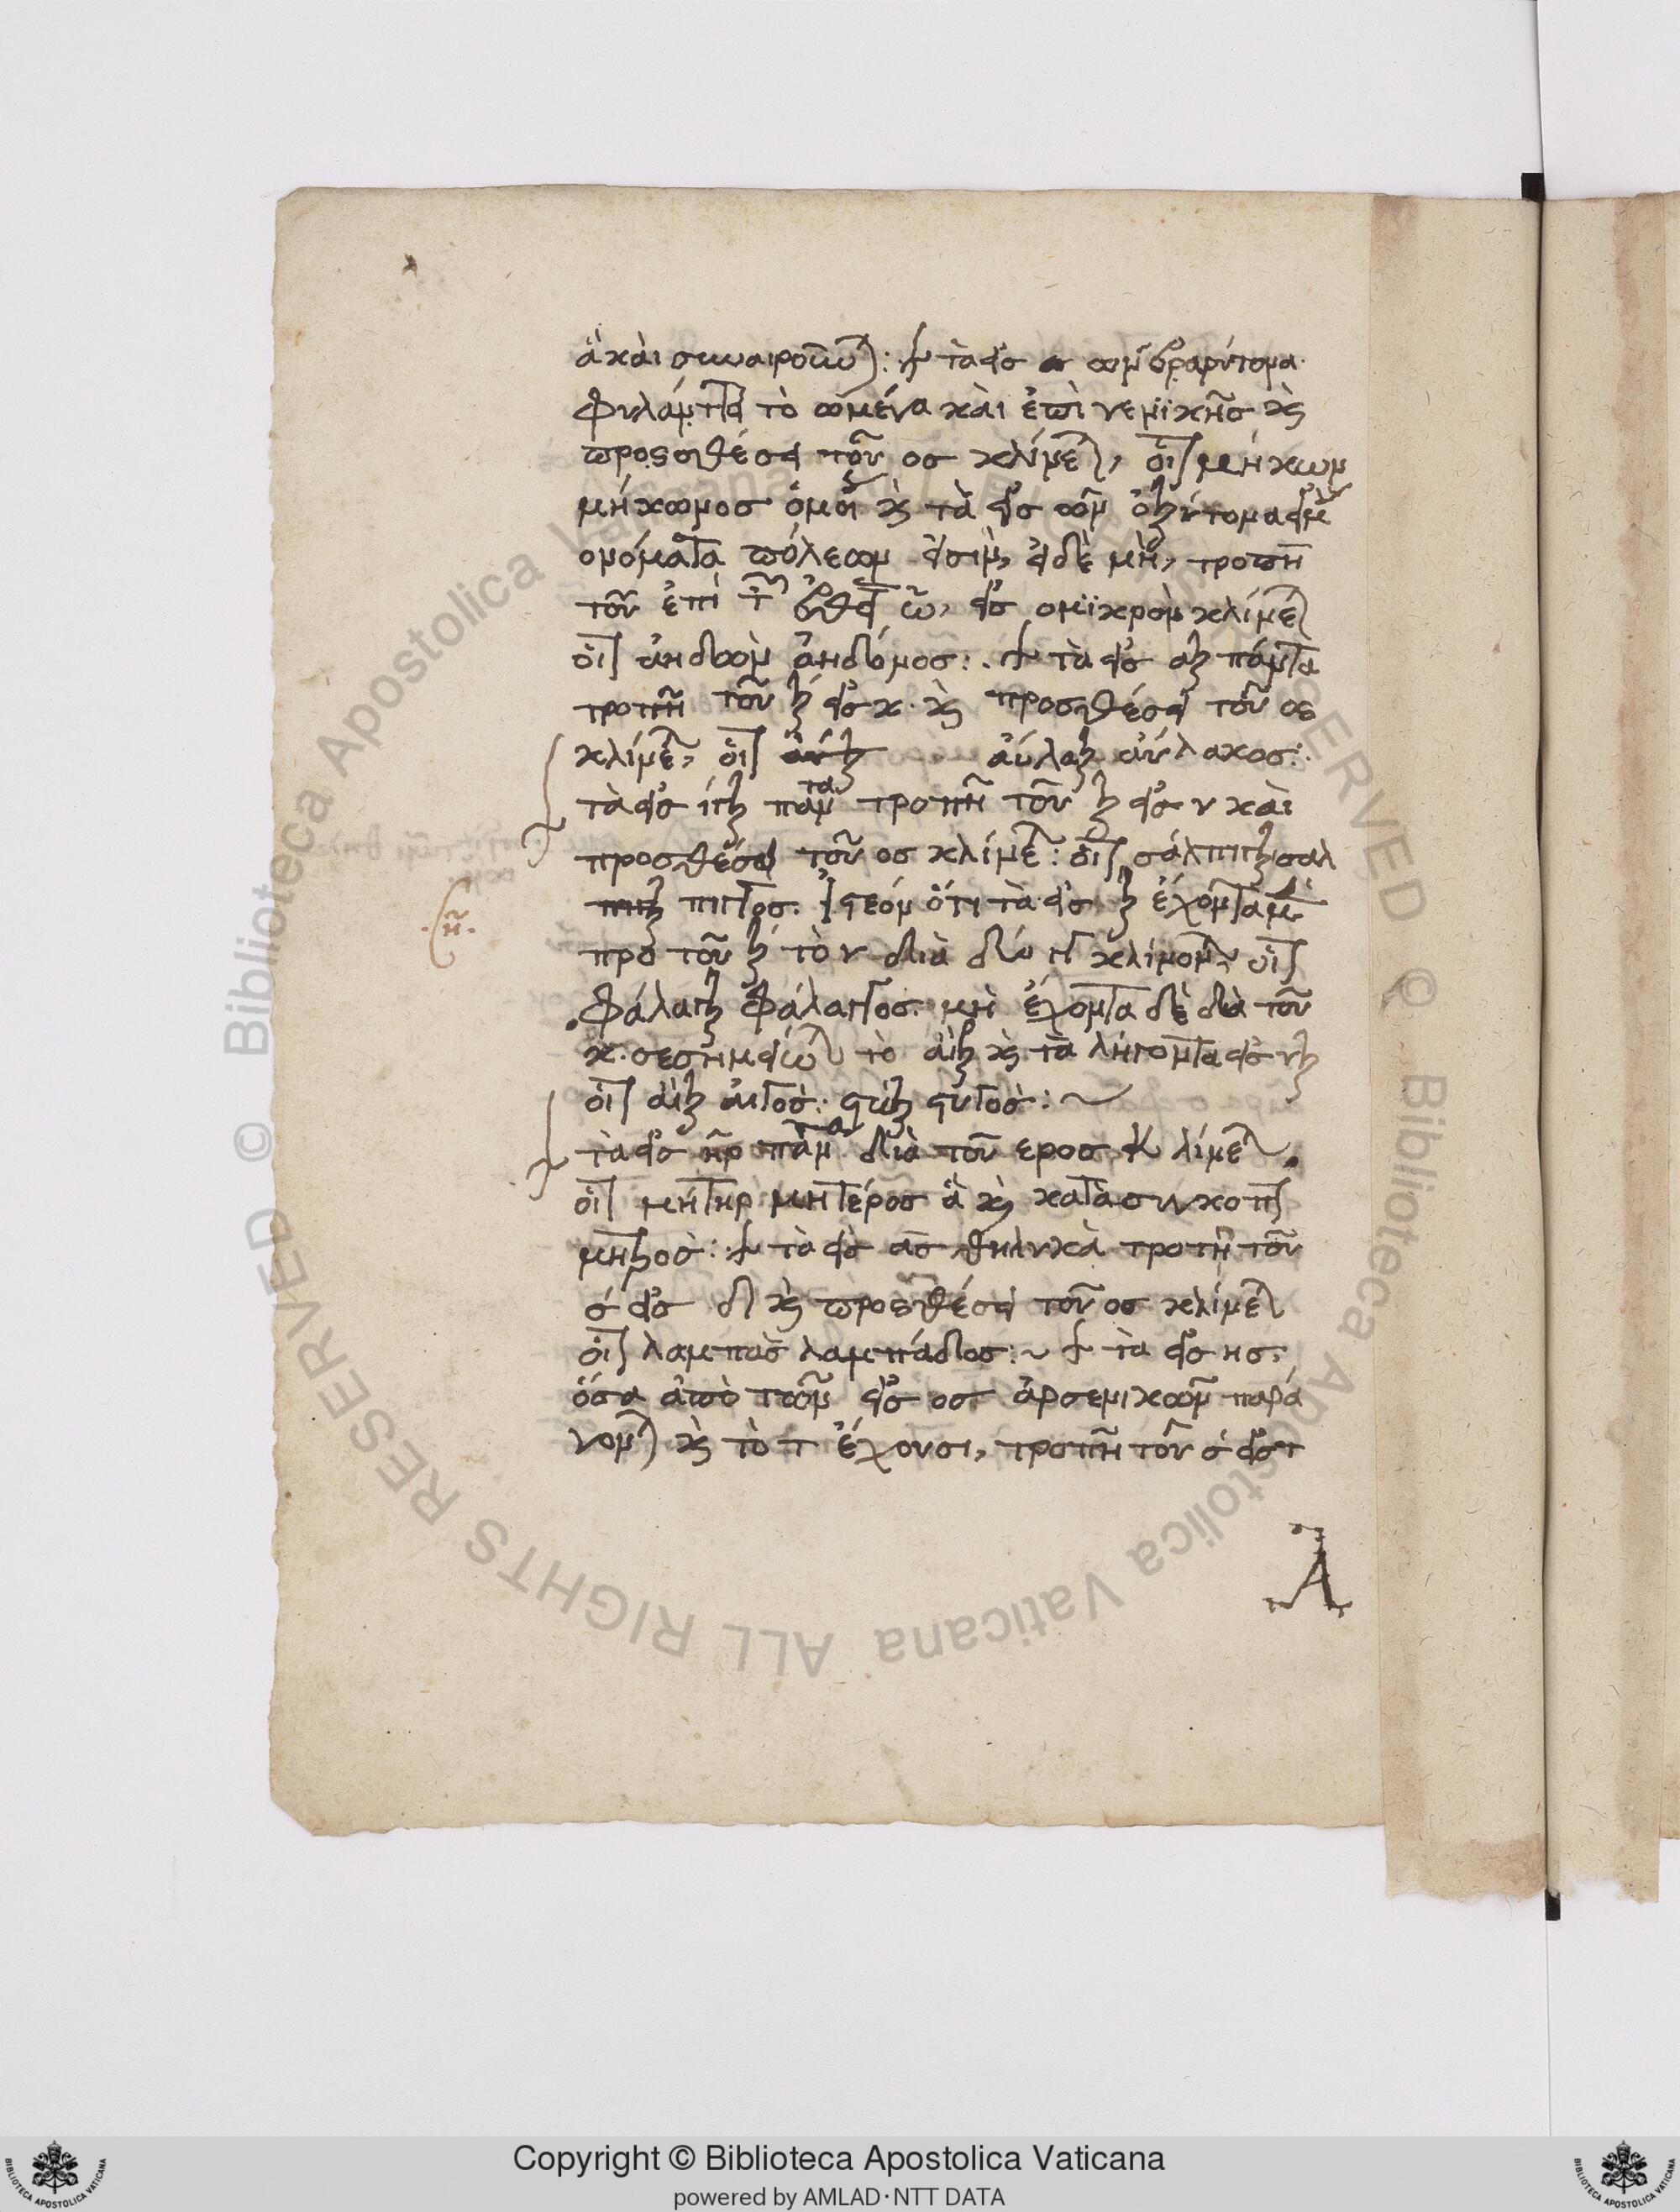 ἃ καὶ συναιροῦνται: τὰ εἰς ων βαρύτονα
φυλάττει τὸ ω μέγα καὶ ἐπὶ γενικῆς καὶ
προσθέσει τοῦ ος κλίνεται, οἷον μήκων
μήκωνος ὁμοίως καὶ τὰ εἰς ων ὀξύτονα εἰ μὲν
ὀνόματα πόλεων εἰσὶν, εἰ δὲ μὴ, τροπῇ
τοῦ ἐπὶ τῆς εὐθείας ω, εἰς ο μικρὸν κλίνεται
οἷον ἀηδὼν ἀηδόνος: τὰ εἰς αξ πάντα
τροπῇ τοῦ ξ εἰς κ. καὶ προσθέσει τοῦ ος
κλίνεται, οἷον αὖλαξ αὔλακος:
τὰ εἰς ιγξ πάντα τροπῇ τοῦ ξ εἰς γ καὶ
προσθέσει τοῦ ος κλίνεται: οἷον σάλπιγξ σάλ
πιγγος. ἰστέον ὅτι τὰ εἰς ξ ἔχοντα μὲν
πρὸ τοῦ ξ τὸ γ διὰ δύο γγ κλίνονται, οἷον
φάλαγξ φάλαγγος. μὴ ἔχοντα δὲ διὰ τοῦ
κ. σεσημείωται τὸ αἲξ καὶ τὰ λήγοντα εἰς υξ
οἷον αἲξ αἰγός. στὺξ στυγός:
τὰ εἰς ηρ πάντα διὰ τοῦ ερος κλίνεται.
οἷον μήτηρ μητέρος ἃ καὶ κατὰ συγκοπὴν
μητρός: τὰ εἰς ας θηλυκὰ τροπῇ τοῦ
σ εἰς δ καὶ προσθέσει τοῦ ος κλίνεται
οἷον λαμπὰς λαμπάδος: τὰ εἰς ης,
ὅσα ἀπὸ τῶν εἰς ος ἀρσενικῶν παρά
γονται καὶ τὸ τ ἔχουσι, τροπῇ τοῦ σ εἰς τ
Copyright © Biblioteca Apostolica Vaticana
powered by AMLAD·NTT DATA